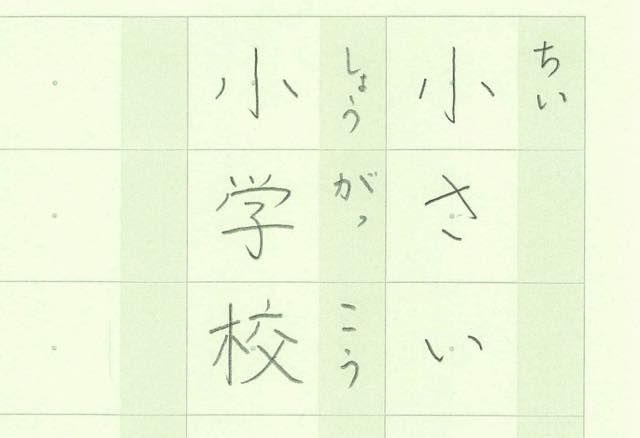 小さい
ちい
小学校
しょうがっこう